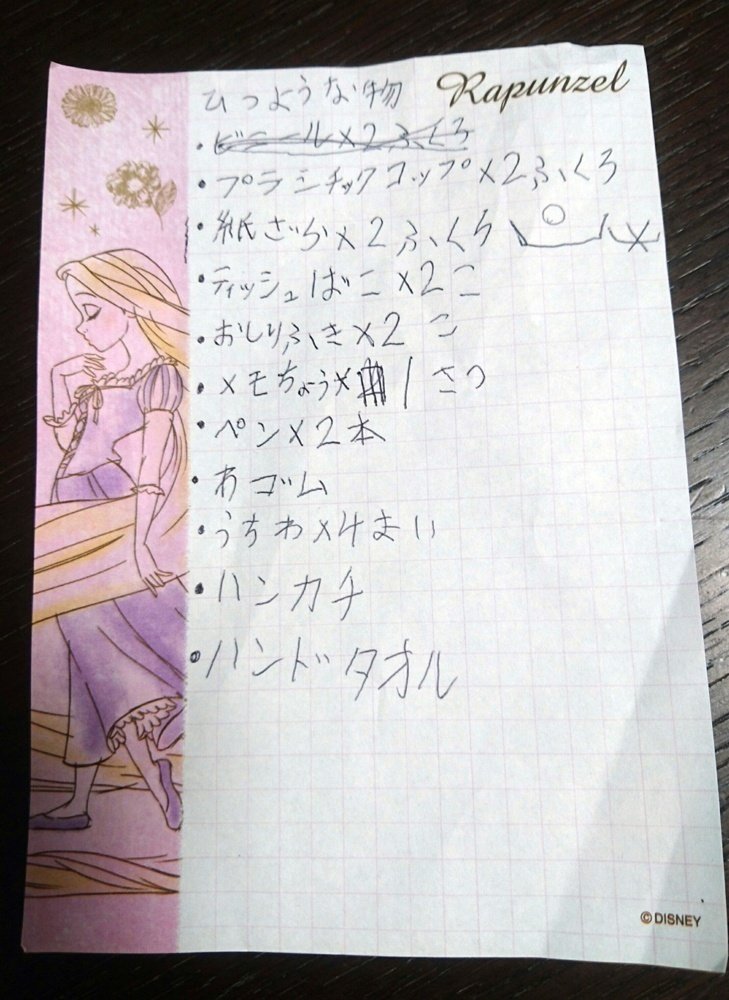 Rapunzel
ひつような物
・ビニール×2ふくろ
・プラスチックコップ×2ふくろ
・紙ざら×2ふくろ
・ティッシュばこ×2こ
・おしりふき×2こ
・メモちょう×1さつ
・ペン×2本
・わゴム
・うちわ×4まい
・ハンカチ
・ハンドタオル
©DISNEY